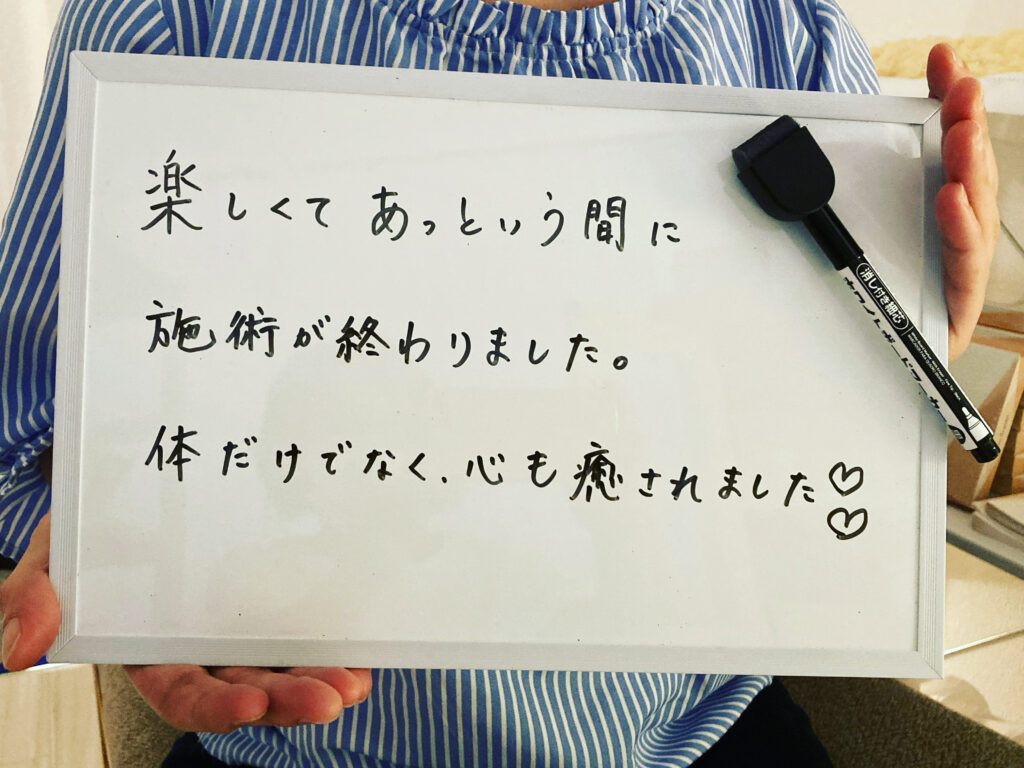 楽しくてあっという間に
施術が終わりました。
体だけでなく、心も癒されました♡
♡
消し付き細芯
ホワイトボードマーカー